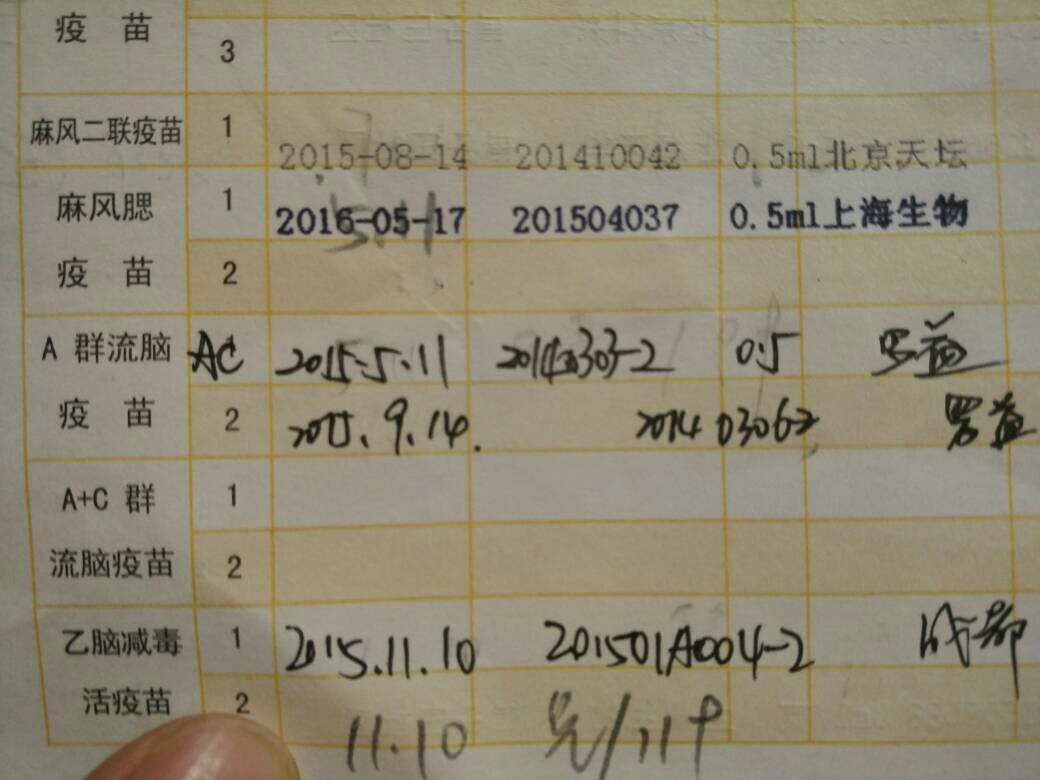 疫 苗 3
麻风二联疫苗 1 2015-08-14 201410042 0.5ml北京天坛
麻风腮 1 2016-05-17 201504037 0.5ml上海生物
疫 苗 2
A 群流脑 AC 2015.5.11 0.5 罗益
疫 苗 2 2015.9.14. 201403062 罗益
A+C 群 1
流脑疫苗 2
乙脑减毒 1 2015.11.10 201501A004-2 成都
活疫苗 2 11.10